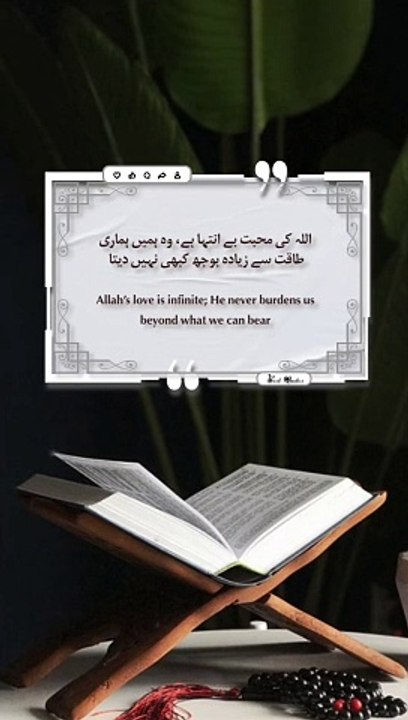 اللہ کی محبت بے انتہا ہے، وہ ہمیں ہماری
طاقت سے زیادہ بوجھ کبھی نہیں دیتا
Allah's love is infinite; He never burdens us
beyond what we can bear